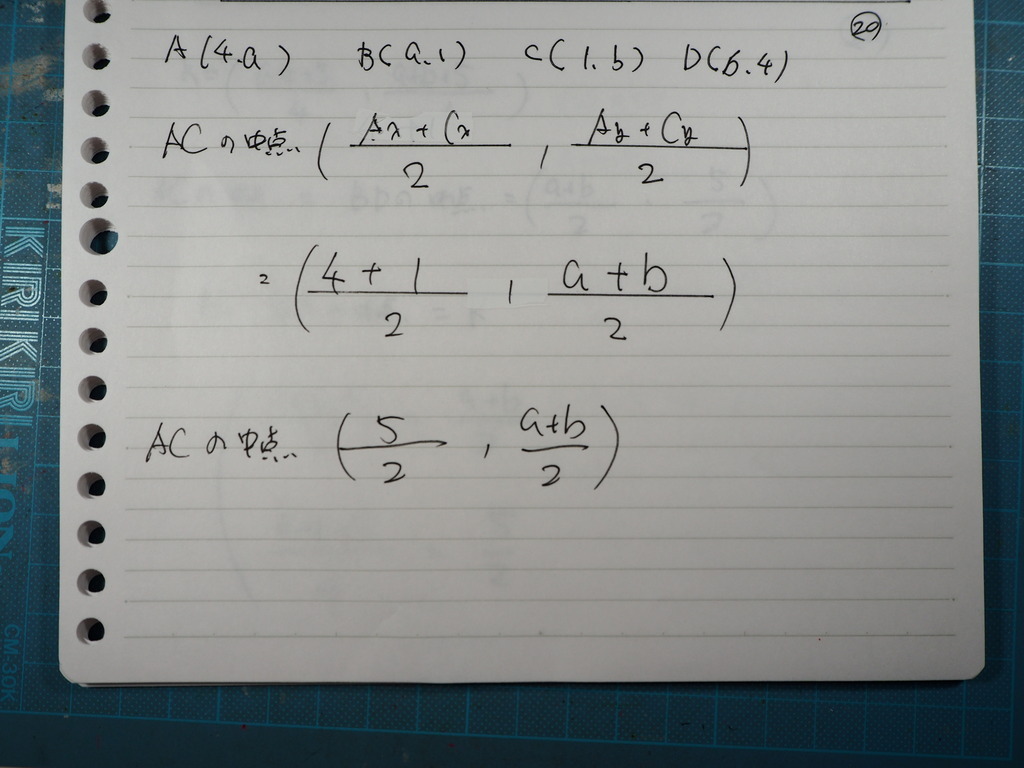 20
A(4.a) B(a.1) C(1.b) D(b.4)
ACの中点 ( Ax + Cx / 2 , Ay + Cy / 2 )
= ( 4 + 1 / 2 , a + b / 2 )
ACの中点 ( 5 / 2 , a+b / 2 )
KIRIKIRI LION
CM-30K